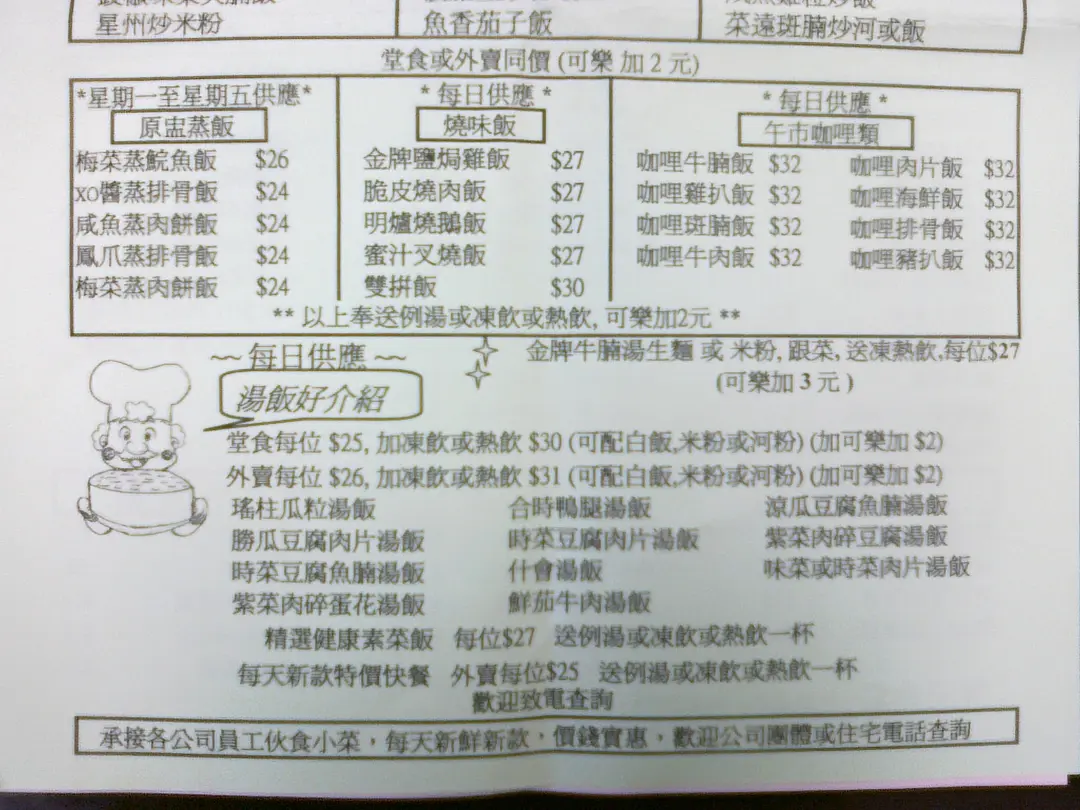 星州炒米粉 魚香茄子飯 菜遠斑腩炒河或飯
堂食或外賣同價 (可樂 加 2 元)
*星期一至星期五供應* * 每日供應 * * 每日供應 *
原盅蒸飯 燒味飯 午市咖哩類
梅菜蒸鯇魚飯 $26 金牌鹽焗雞飯 $27 咖哩牛腩飯 $32 咖哩肉片飯 $32
XO醬蒸排骨飯 $24 脆皮燒肉飯 $27 咖哩雞扒飯 $32 咖哩海鮮飯 $32
咸魚蒸肉餅飯 $24 明爐燒鵝飯 $27 咖哩斑腩飯 $32 咖哩排骨飯 $32
鳳爪蒸排骨飯 $24 蜜汁叉燒飯 $27 咖哩牛肉飯 $32 咖哩豬扒飯 $32
梅菜蒸肉餅飯 $24 雙拼飯 $30
** 以上奉送例湯或凍飲或熱飲, 可樂加2元 **
~~ 每日供應 ~~
金牌牛腩湯生麵 或 米粉, 跟菜, 送凍熱飲,每位$27
(可樂加 3 元 )
湯飯好介紹
堂食每位 $25, 加凍飲或熱飲 $30 (可配白飯,米粉或河粉) (加可樂加 $2)
外賣每位 $26, 加凍飲或熱飲 $31 (可配白飯,米粉或河粉) (加可樂加 $2)
瑤柱瓜粒湯飯 合時鴨腿湯飯 涼瓜豆腐魚腩湯飯
勝瓜豆腐肉片湯飯 時菜豆腐肉片湯飯 紫菜肉碎豆腐湯飯
時菜豆腐魚腩湯飯 什會湯飯 味菜或時菜肉片湯飯
紫菜肉碎蛋花湯飯 鮮茄牛肉湯飯
精選健康素菜飯 每位$27 送例湯或凍飲或熱飲一杯
每天新款特價快餐 外賣每位$25 送例湯或凍飲或熱飲一杯
歡迎致電查詢
承接各公司員工伙食小菜，每天新鮮新款，價錢實惠，歡迎公司團體或住宅電話查詢